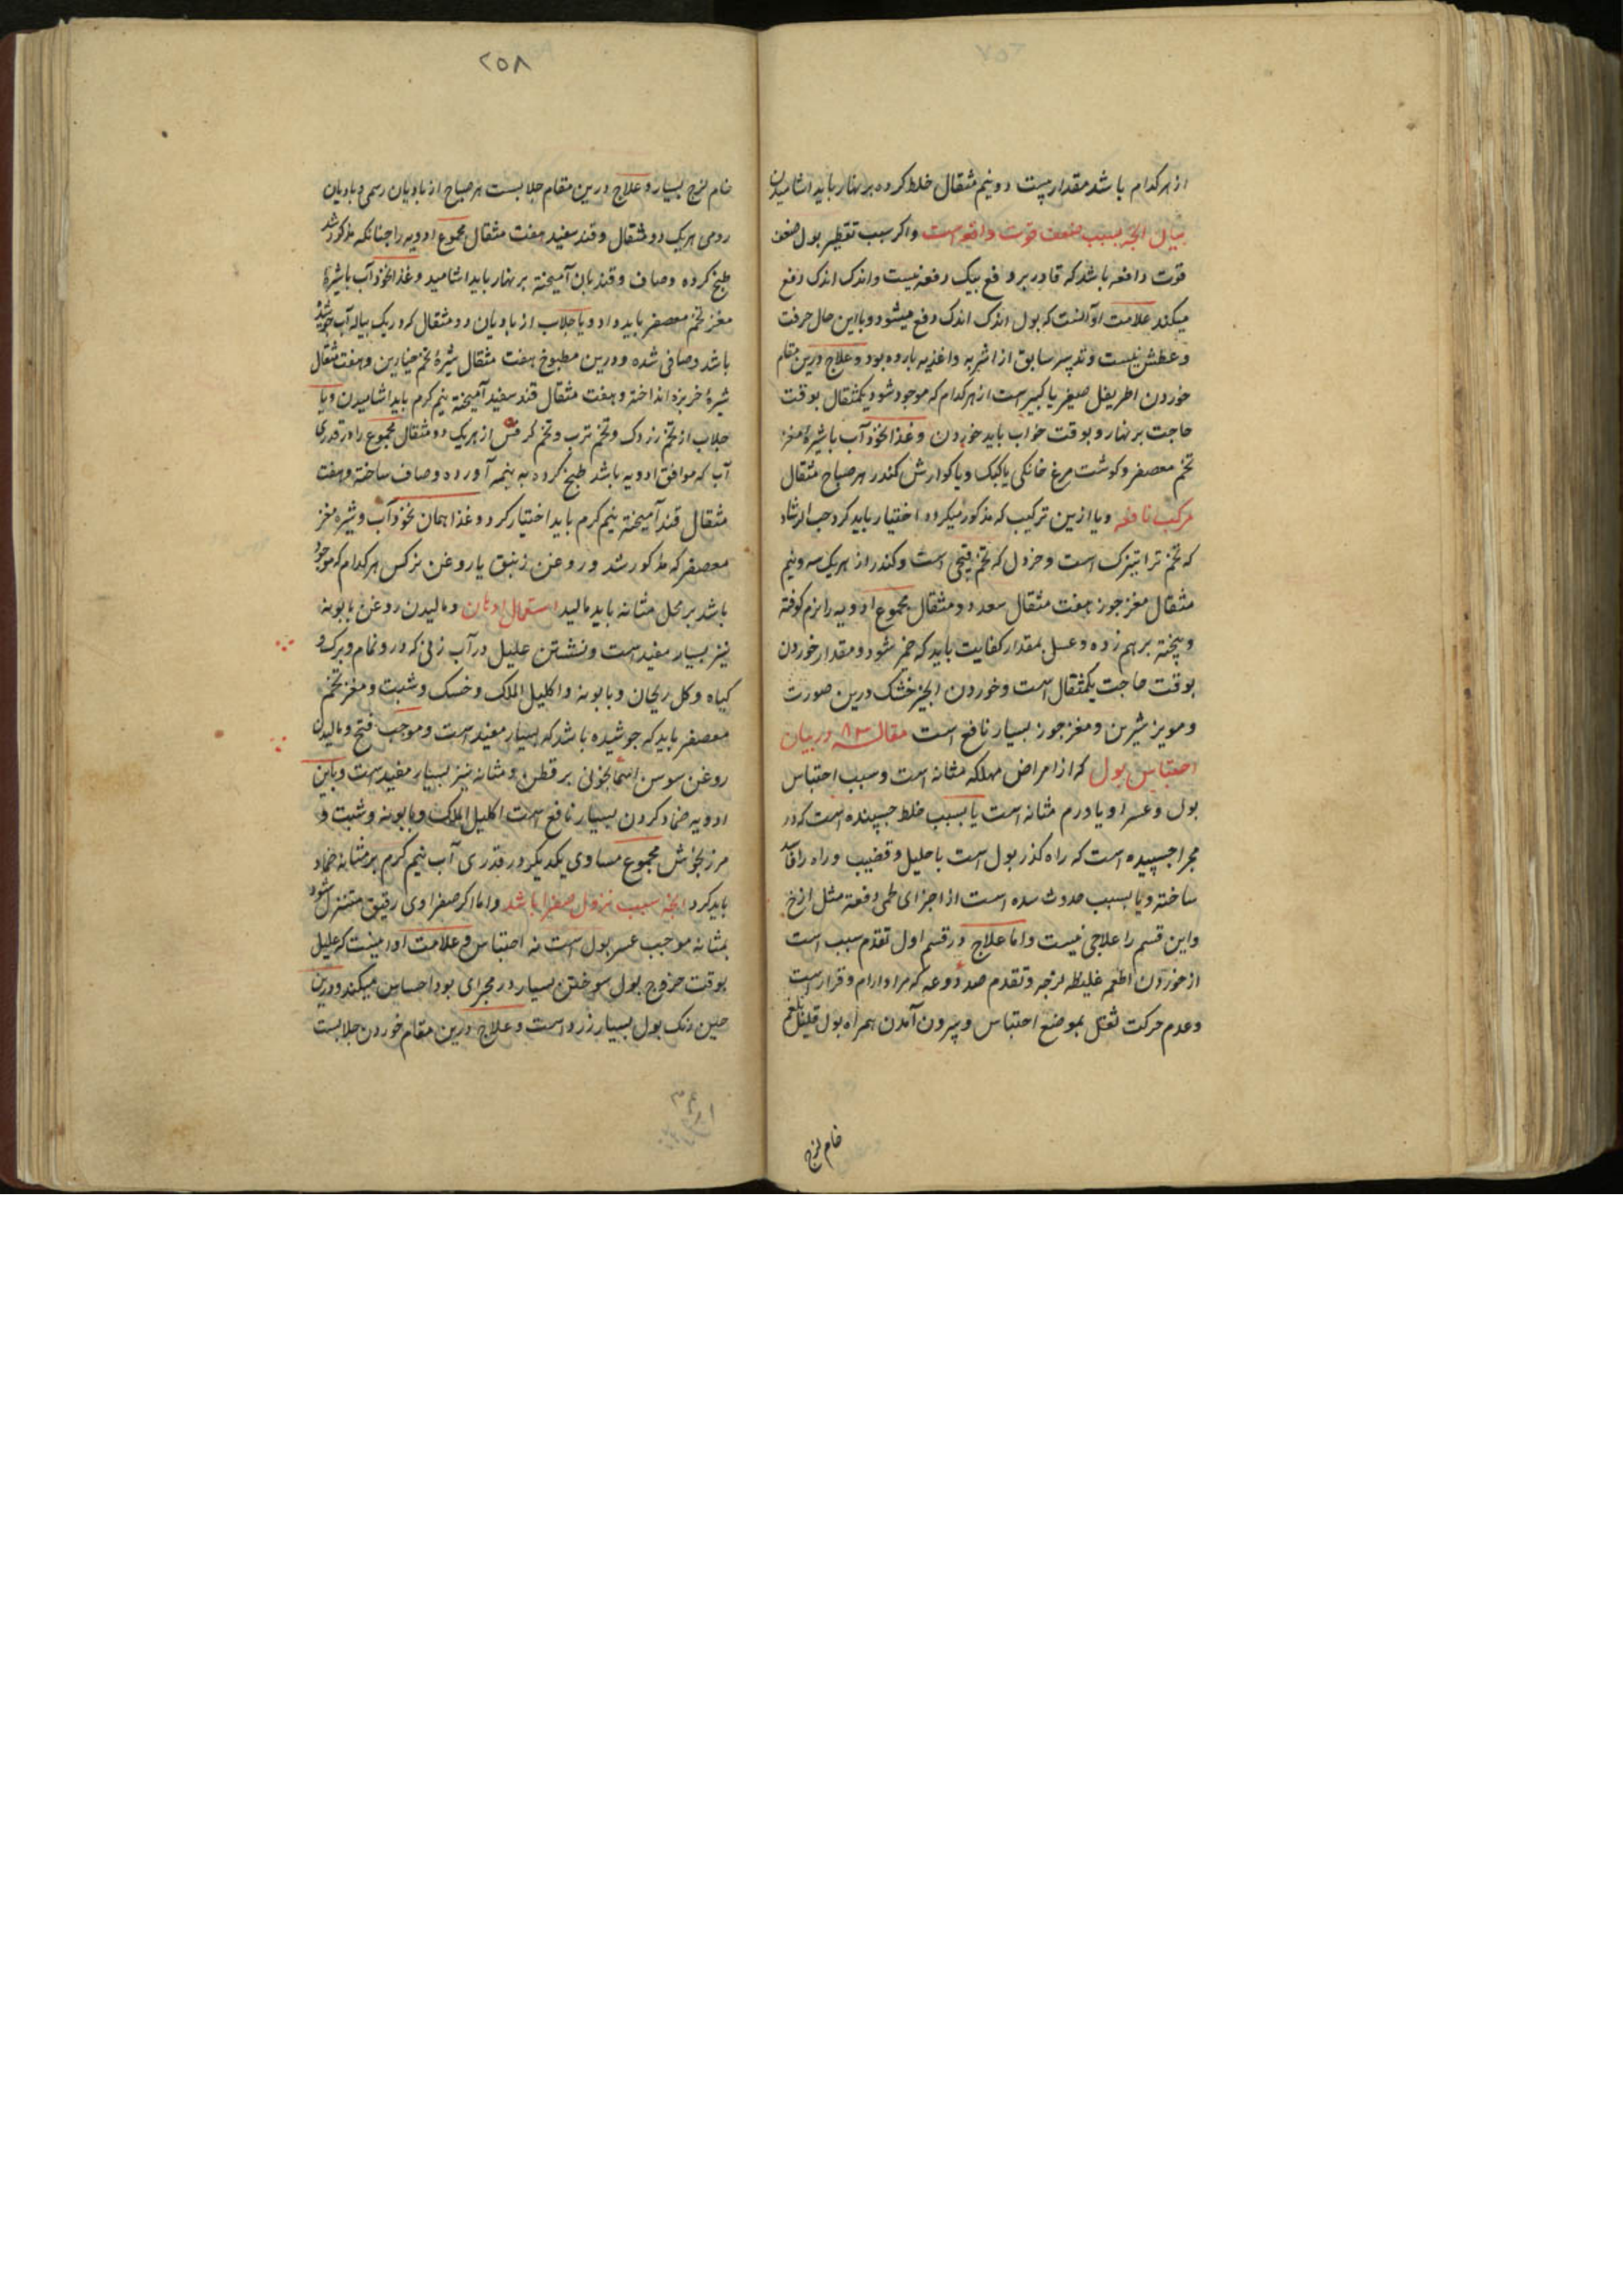 از هر کدام باشد مقدار بیست و دو نیم مثقال خلط کرده بر نهار باید اشامیدن
بیان انچه بسبب ضعف قوت دافعه است و اکر سبب تقطیر بول ضعف
قوت دافعه باشد که قادر بر دفع بیک دفعه نیست و اندک اندک دفع
میکند علامت او آنست که بول اندک اندک دفع میشود و با این حال حرقت
و عطش نیست و تدبیر سابق از اشربه و اغذیه بارده بود و علاج درین مقام
خوردن اطریفل صغیر یا کبیر است از هر کدام که موجود شود یکمثقال بوقت
حاجت بر نهار و بوقت خواب باید خوردن و غذا نخود آب با شیرۀ مغز
تخم معصفر و کوشت مرغ خانکی یا کبک و یا کوارش کندر هر صباح مثقال
مرکب نافعه و یا ازین ترکیب که مذکور میکردد اختیار باید کرد حب الرشاد
که تخم تراتیزک است و خردل که تخم است و کندر از هر یک سه و نیم
مثقال مغز جوز هفت مثقال سعد دو مثقال مجموع ادویه را نرم کوفته
و بیخته بر هم زده و عسل بمقدار کفایت باید که خمر شود و مقدار خوردن
بوقت حاجت یکمثقال است و خوردن انجیر خشک درین صورت
و مویز شیرین و مغز جوز بسیار نافع است مقاله ۸۳ در بیان
احتباس بول که از امراض مهلکه مثانه است و سبب احتباس
بول و عسر او یا ورم مثانه است یا بسبب خلط چسپنده است که در
مجرا چسپیده است که راه کذر بول است باحلیل و قضیب و راه را فاسد
ساخته و یا بسبب حدوث سده است از اجزای لحمی دفعة مثل ازخ
و این قسم را علاجی نیست و اما علاج در قسم اول تقدم سبب است
از خوردن اطعمه غلیظه لزجه و تقدم صد و وعه که مر او ارام و قرار است
و عدم حرکت ثقل بموضع احتباس و بیرون آمدن همراه بول قلیل بلغم
خام لزج
۲۵۸
خام لزج بسیار و علاج درین مقام جلابست هر صباح از بادیان رسمی و بادیان
رومی هر یک دو مثقال و قند سفید هفت مثقال مجموع ادویه را چنانکه مذکور شد
طبخ کرده و صاف و قند بان آمیخته بر نهار باید اشامید و غذا نخود آب با شیرۀ
مغز تخم معصفر باید داد و یا جلاب از بادیان دو مثقال که در یک پیاله آب جوشیده
باشد و صافی شده و درین مطبوخ هفت مثقال شیرۀ تخم خیارین و هفت مثقال
شیرۀ خربزه انداخته و هفت مثقال قند سفید آمیخته نیم کرم باید اشامیدن و یا
جلاب از تخم زردک و تخم ترب و تخم کرفس از هر یک دو مثقال مجموع را در قدری
آب که موافق ادویه باشد طبخ کرده به نیمه آورده و صاف ساخته و هفت
مثقال قند آمیخته نیم کرم باید اختیار کرد و غذا همان نخود آب و شیره مغز
معصفر که مذکور شد و روغن زنبق یا روغن نرکس هر کدام که موجود
باشد بر محل مثانه باید مالید استعمال ادهان و مالیدن روغن بابونه
نیز بسیار مفید است و نشستن علیل در آب زنی که در و نمام و برک و
کیاه و کل ریحان و بابونه و اکلیل الملک و خسک و شبت و مغز تخم
معصفر باید که جوشیده باشد که بسیار مفید است و موجب فتح و مالیدن
روغن سوسن اسمانجونی بر قطن و مثانه نیز بسیار مفید است و باین
ادویه ضماد کردن بسیار نافع است اکلیل الملک و بابونه و شبت و
مرزنجوش مجموع مساوی یکدیکر در قدری آب نیم کرم بر مثانه ضماد
باید کرد انچه سبب نزول صفرا باشد و اما اکر صفراوی رقیق متنزل شود
بمثانه موجب عسر بول است نه احتباس و علامت او اینست که علیل
بوقت خروج بول سوختن بسیار در مجرای بود احساس میکند و درین
حین رنک بول بسیار زرد است و علاج درین مقام خوردن جلابست